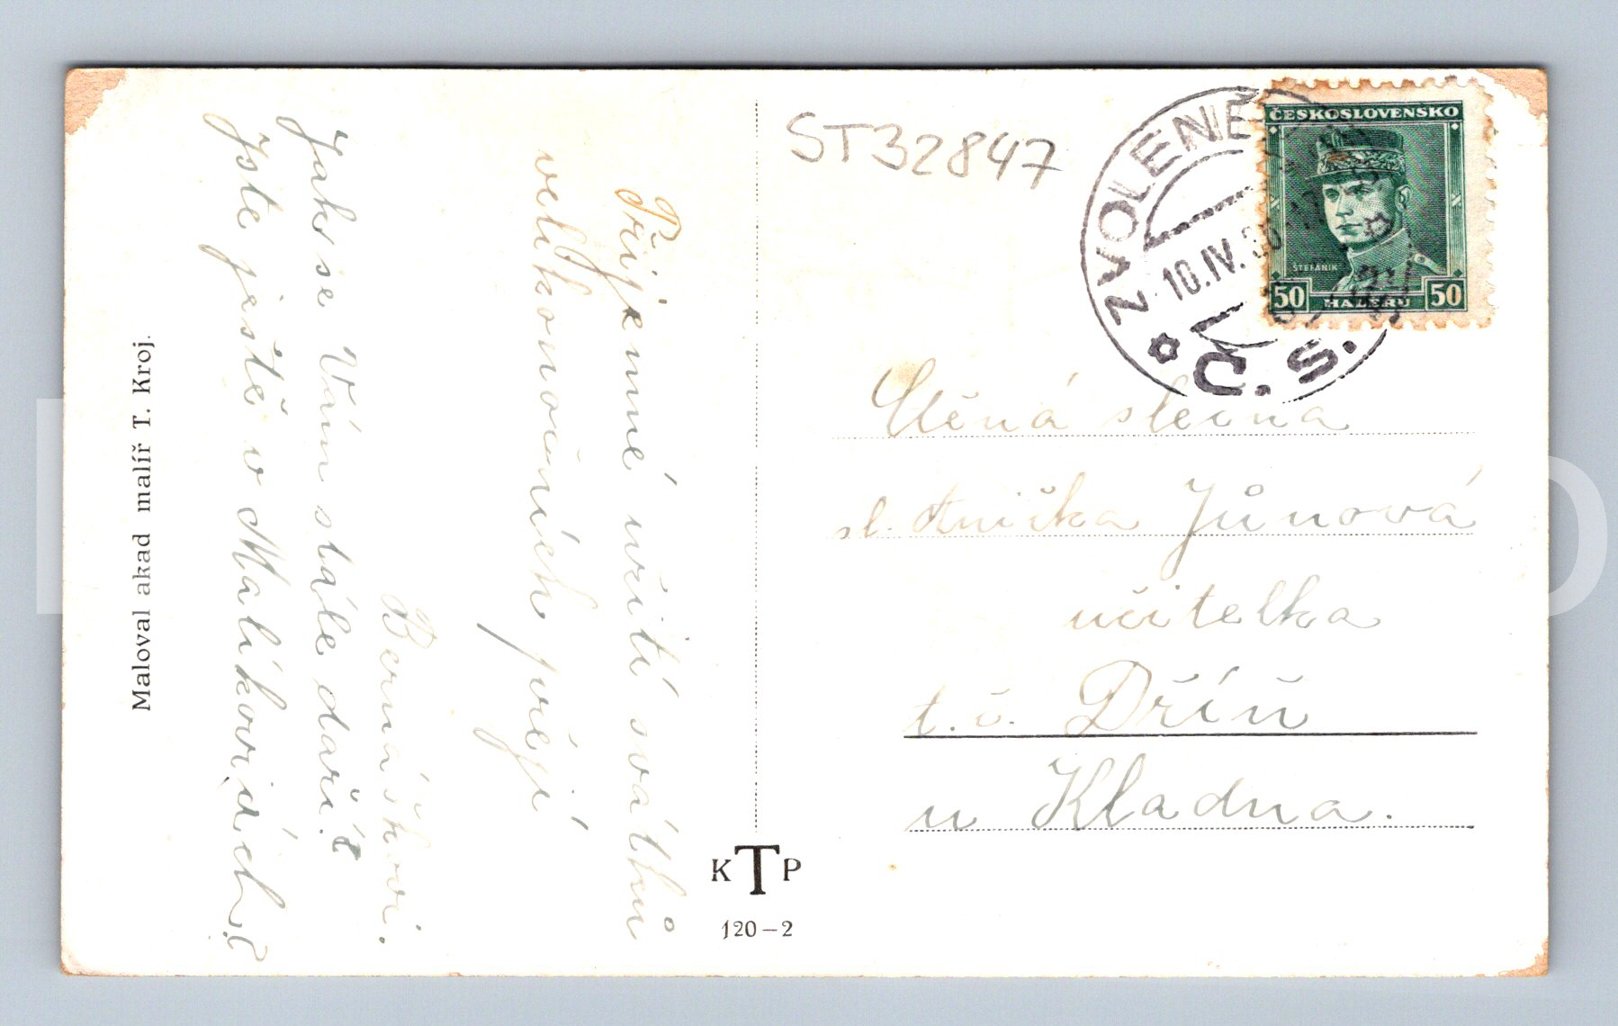 ST32847
ZVOLENĚ
10.IV.
Č.S.
ČESKOSLOVENSKO
ŠTEFÁNIK
50 HALÉŘŮ 50
Příjemné užití svátků
velikonočních přejí
Bernáškovi.
Jak se Vám stále daří?
Jste ještě v Malíkovicích?
Ctěná slečna
sl. Anička Jůnová
učitelka
t. č. Dřín
u Kladna.
Maloval akad malíř T. Kroj.
KTP
120-2